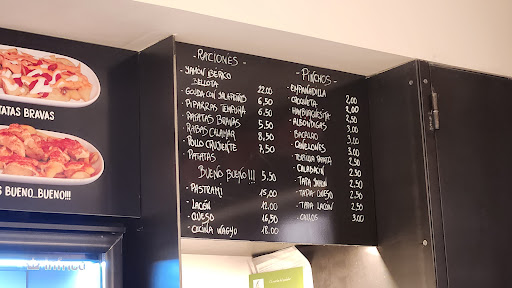 TATAS BRAVAS
S BUENO_BUENO!!!
RACIONES
- JAMÓN IBÉRICO
BELLOTA 22,00
- GOUDA CON JALAPEÑOS 6,50
- PIPARRAS TEMPURA 6,50
- PATATAS BRAVAS 5,50
- RABAS CALAMAR 8,50
- POLLO CRUJIENTE 7,50
- PATATAS
BUENO BUENO!!! 5,50
- PASTRAMI 15,00
- LACÓN 12,00
- QUESO 16,50
- CECINA WAGYU 18,00
- PINCHOS -
- EMPANADILLA 2,00
- CROQUETA 2,00
- HAMBURGUESITA 3,00
- ALBÓNDIGAS 2,00
- BACALAO 3,00
- CANELONES 3,00
- TORTILLA PATATA 2,50
- CALABACÍN 2,50
- TAPA JAMÓN 3,50
- TAPA QUESO 2,50
- TAPA LACÓN 2,50
- CALLOS 3,00